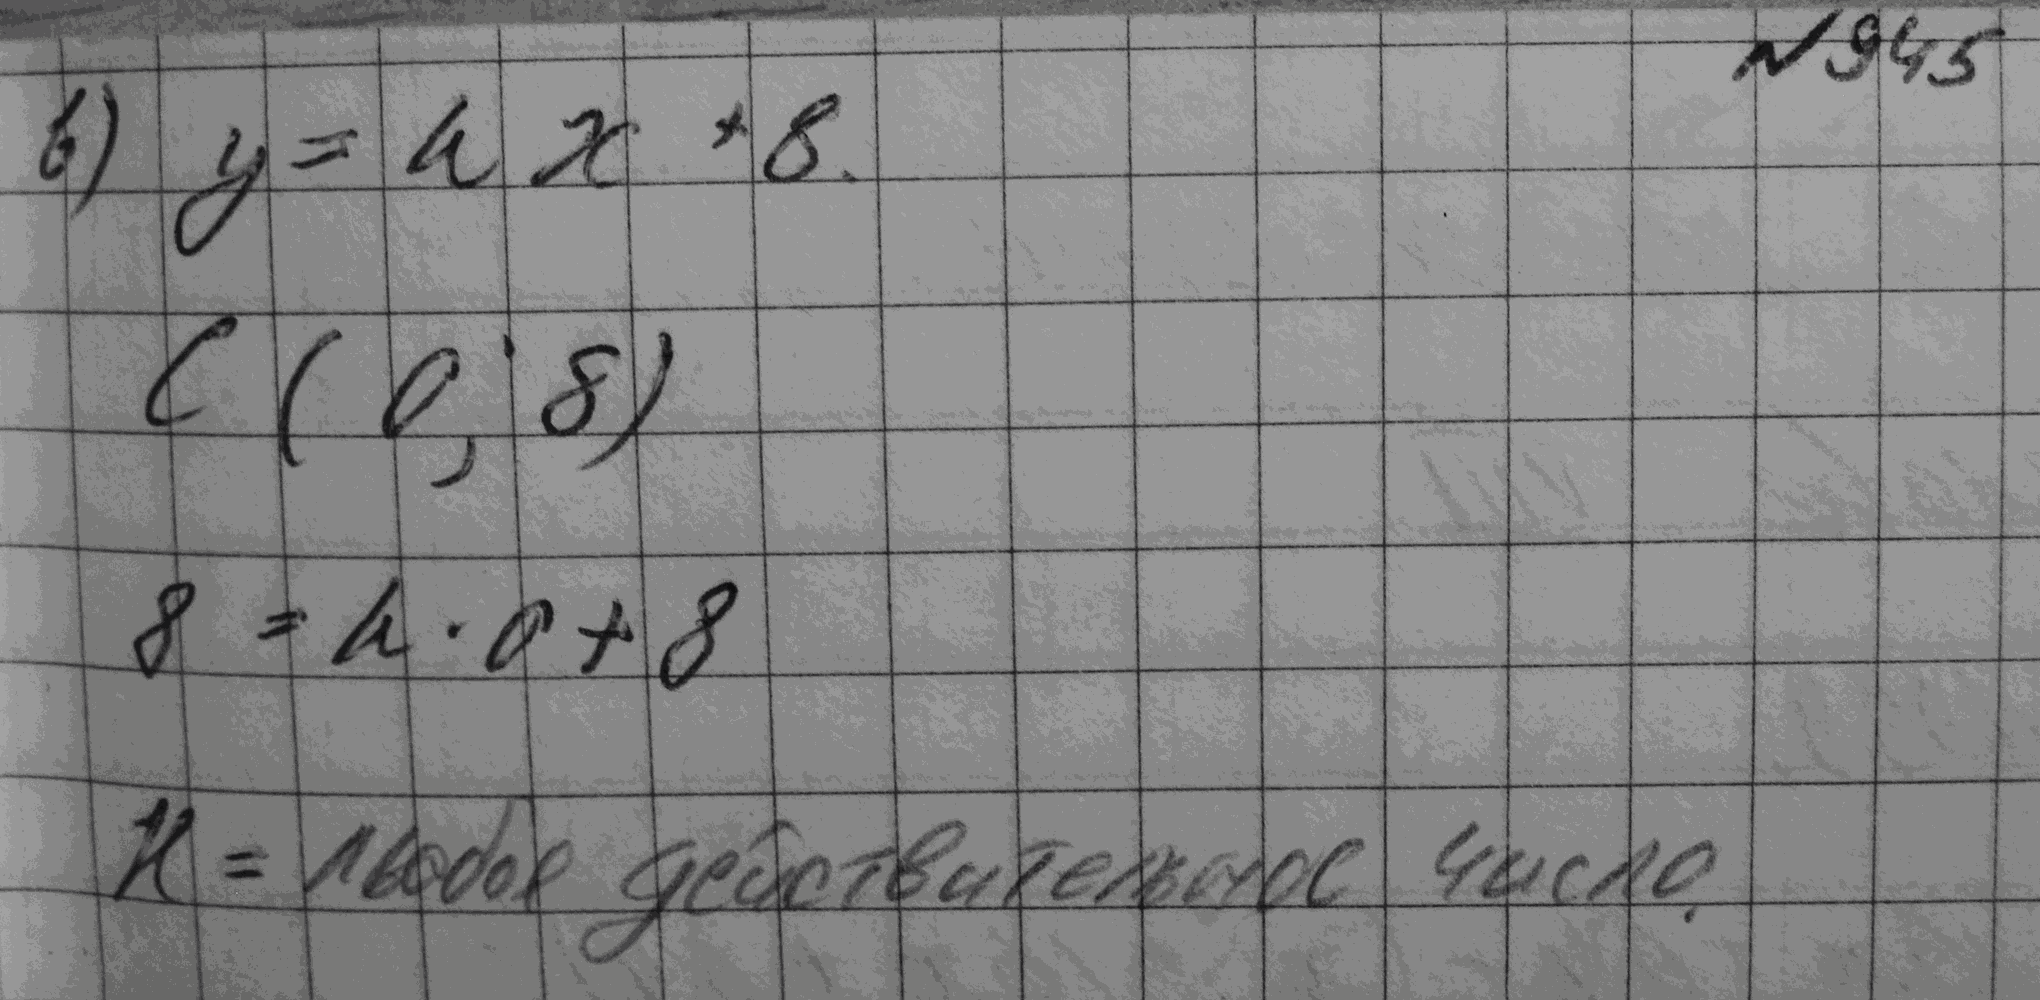 №945
в) y = k x + 8.
C ( 0; 8)
8 = k · 0 + 8
K = любое действительное число.